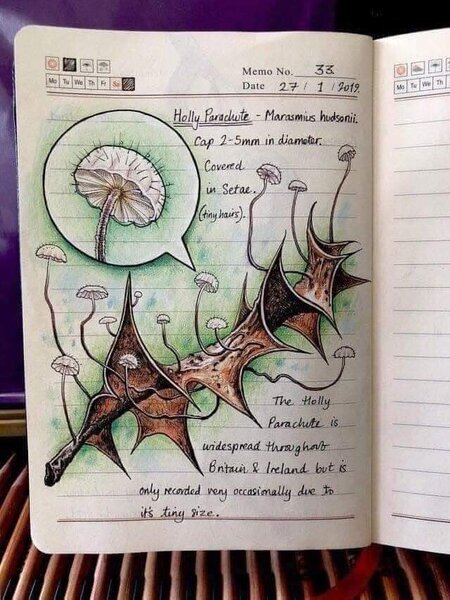 Memo No. 33
Mo Tu We Th Fr Sa
Date 27 / 1 / 2019
Holly Parachute - Marasmius hudsonii.
Cap 2-5mm in diameter.
Covered
in Setae.
(tiny hairs).
The Holly
Parachute is
widespread throughout
Britain & Ireland but is
only recorded very occasionally due to
it's tiny size.
Mo Tu We Th